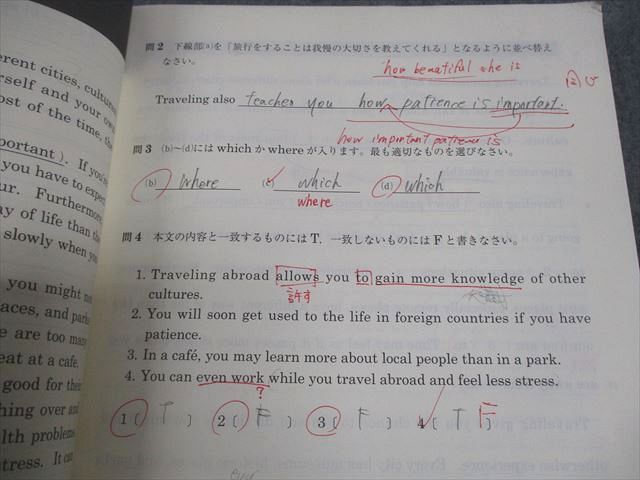 問2 下線部(a)を「旅行をすることは我慢の大切さを教えてくれる」となるように並べ替え
なさい。
how beautiful she is
Traveling also teaches you how patience is important.
how important patience is
問3 (b)~(d)にはwhichかwhereが入ります。最も適切なものを選びなさい。
(b) where (c) which (d) which
where
問4 本文の内容と一致するものにはT、一致しないものにはFと書きなさい。
1. Traveling abroad allows you to gain more knowledge of other
許す
cultures.
2. You will soon get used to the life in foreign countries if you have
patience.
3. In a café, you may learn more about local people than in a park.
4. You can even work while you travel abroad and feel less stress.
?
1〔 T 〕 2〔 F 〕 3〔 F 〕 4〔 T F 〕
erent cities, cultures
rself and your own
ost of the time, th
portant ). If you're
you have to expe
ur. Furthermore,
ay of life than th
slowly when you
you might no
aces, and parks
e are too many
eat at a cafe.
good for their
hing over and
lth problems
tress. It can